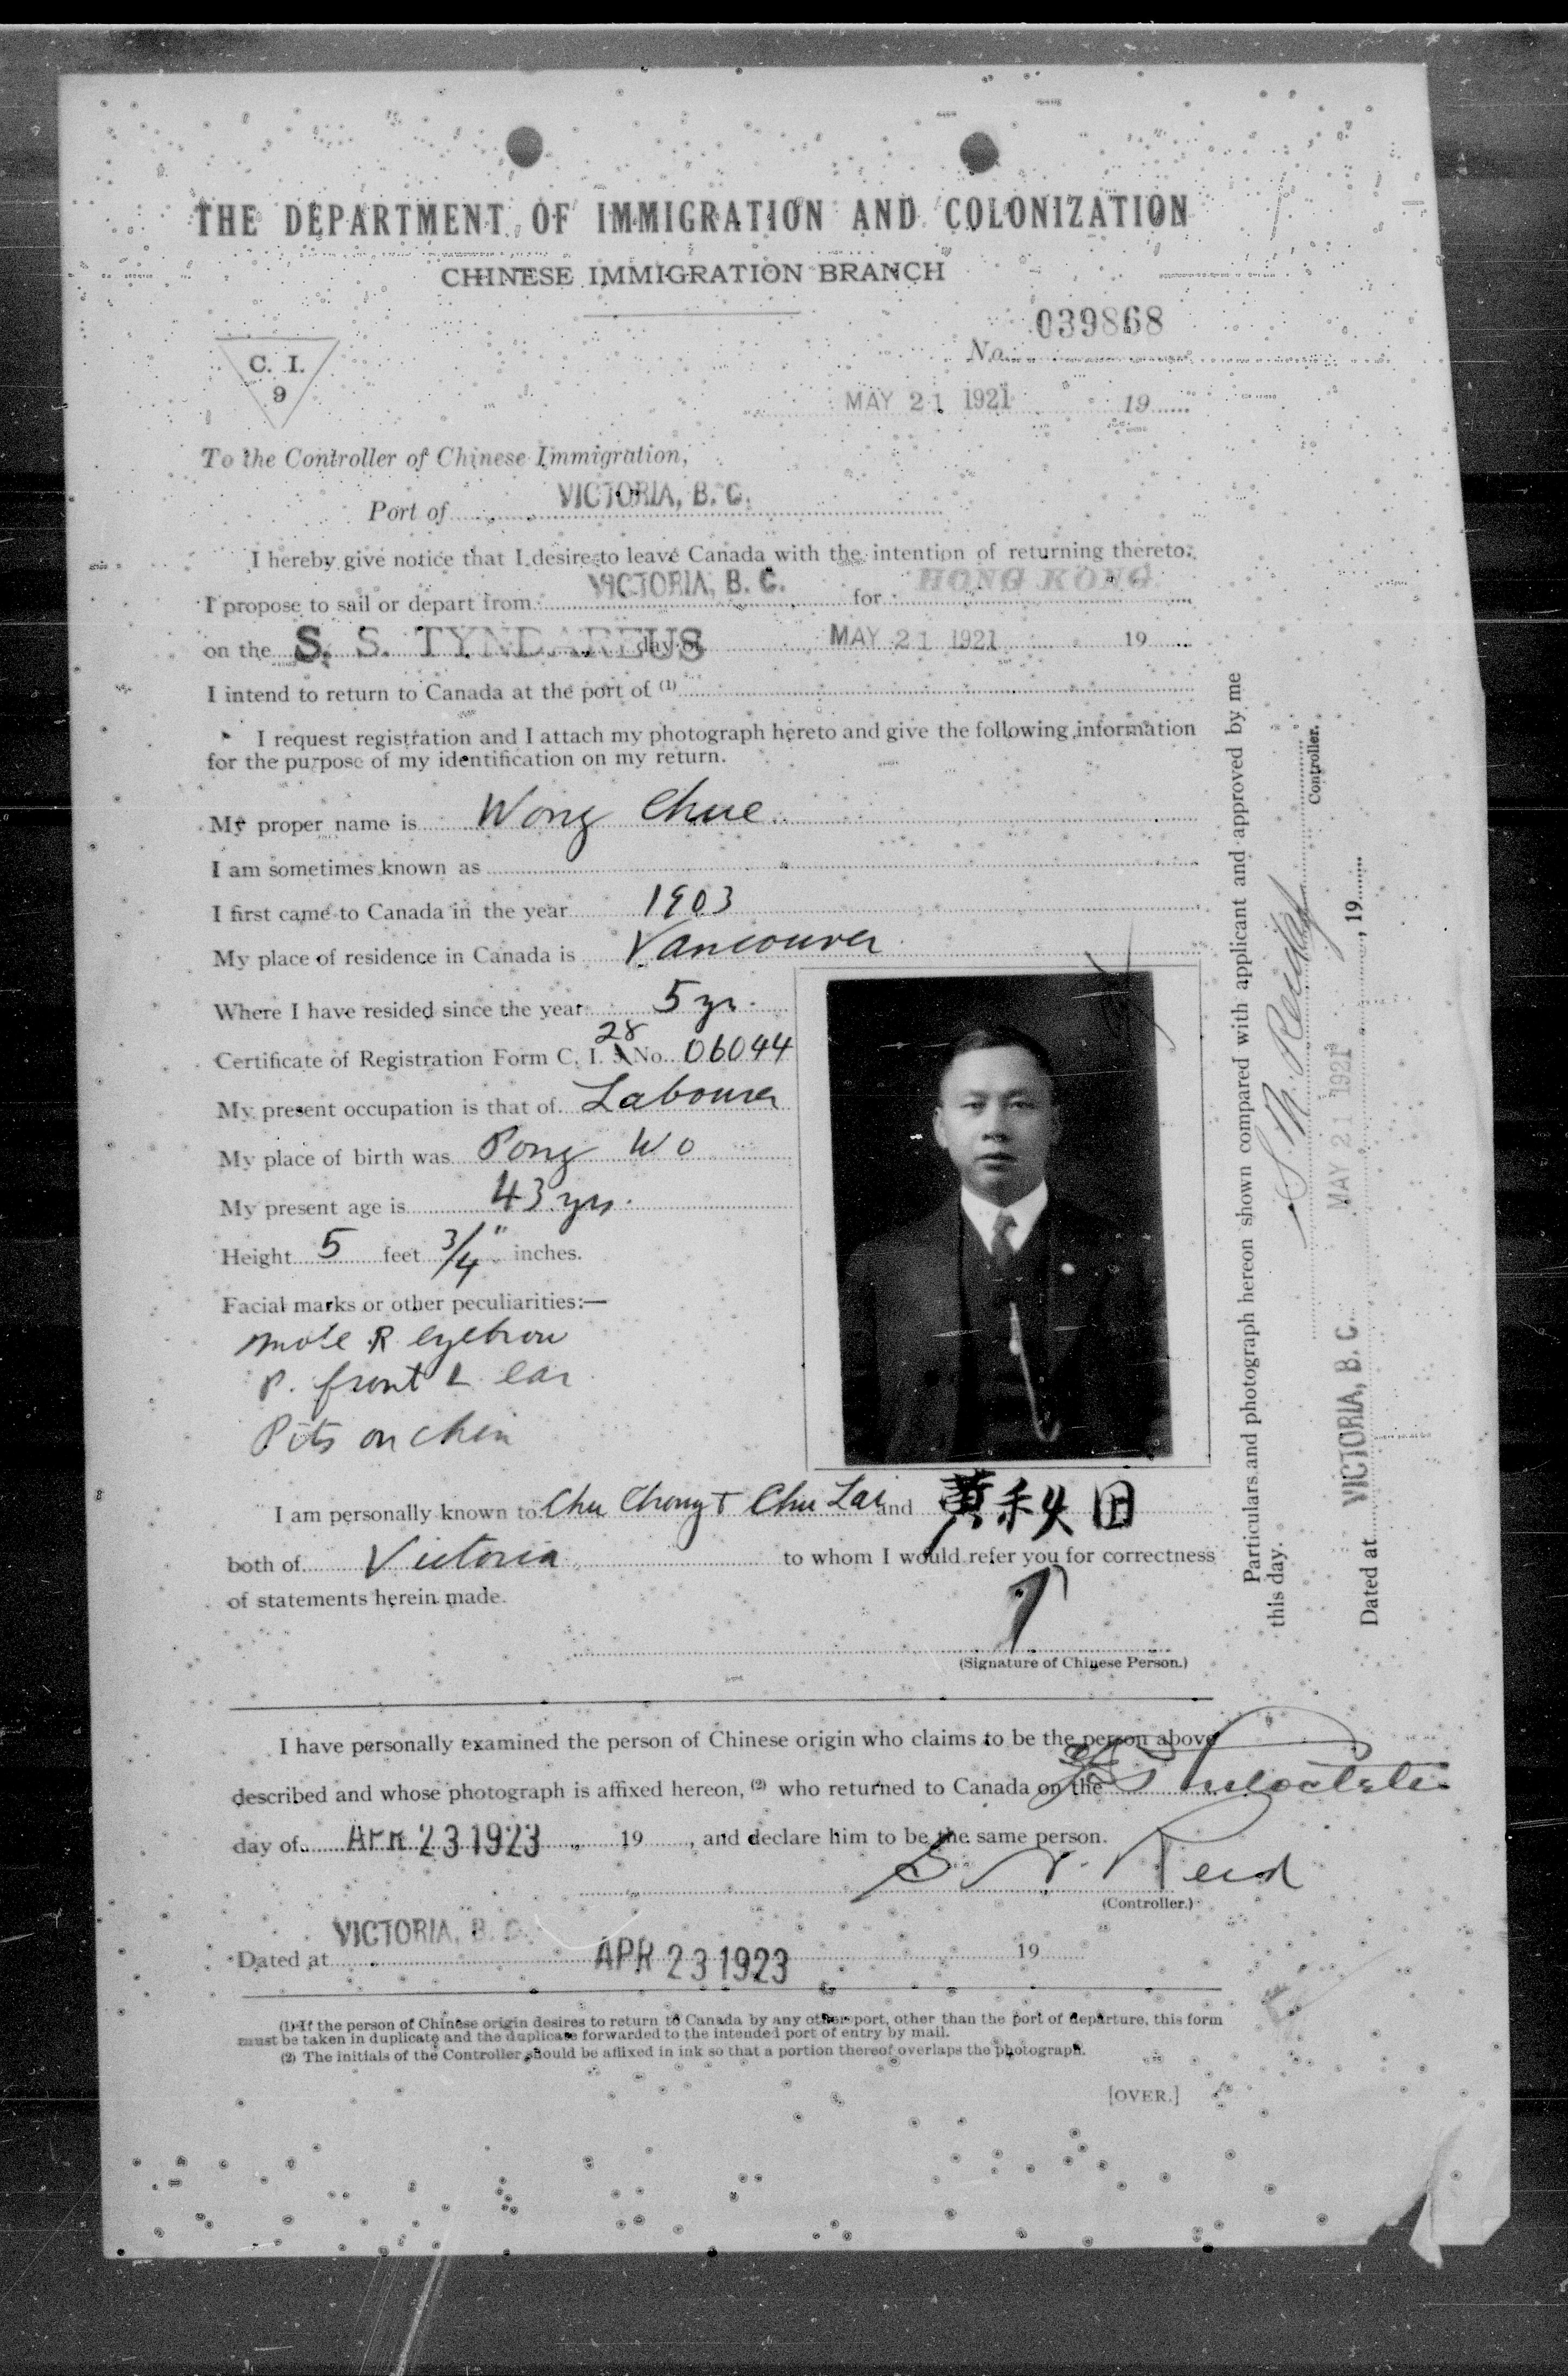 THE DEPARTMENT OF IMMIGRATION AND COLONIZATION
CHINESE IMMIGRATION BRANCH
039868
No.
C. I.
9
MAY 21 1921 19
To the Controller of Chinese Immigration,
Port of VICTORIA, B. C.
I hereby give notice that I desire to leave Canada with the intention of returning thereto.
I propose to sail or depart from VICTORIA, B. C. for HONG KONG
on the S. S. TYNDAREUS day of MAY 21 1921 19
I intend to return to Canada at the port of (1)
I request registration and I attach my photograph hereto and give the following information
for the purpose of my identification on my return.
My proper name is Wong Chue
I am sometimes known as
I first came to Canada in the year 1903
My place of residence in Canada is Vancouver
Where I have resided since the year 5 yr.
28
Certificate of Registration Form C. I. No. 06044
My present occupation is that of Labourer
My place of birth was Pong Wo
My present age is 43 yrs.
Height 5 feet 3/4" inches.
Facial marks or other peculiarities:—
mole R eyebrow
P. front L ear
Pits on chin
I am personally known to Chu Chong + Chu Lai and 黃秋田
both of Victoria to whom I would refer you for correctness
of statements herein made.
(Signature of Chinese Person.)
I have personally examined the person of Chinese origin who claims to be the person above
described and whose photograph is affixed hereon, (2) who returned to Canada on the
day of APR 23 1923 19 , and declare him to be the same person.
(Controller.)
Dated at VICTORIA, B. C. APR 23 1923 19
(1) If the person of Chinese origin desires to return to Canada by any other port, other than the port of departure, this form
must be taken in duplicate and the duplicate forwarded to the intended port of entry by mail.
(2) The initials of the Controller should be affixed in ink so that a portion thereof overlaps the photograph.
[OVER.]
Particulars and photograph hereon shown compared with applicant and approved by me
this day.
Controller.
Dated at VICTORIA, B. C. MAY 21 1921 , 19